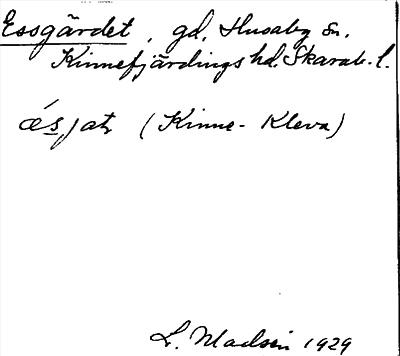 Essgärdet, gd, Husaby sn.
Kinnefjärdings hd. Skarab. l.
(Kinne-Kleva)
L. Madsén 1929